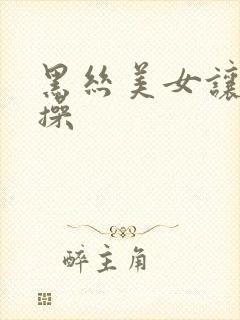 黑絲美女讓
操
醉主角